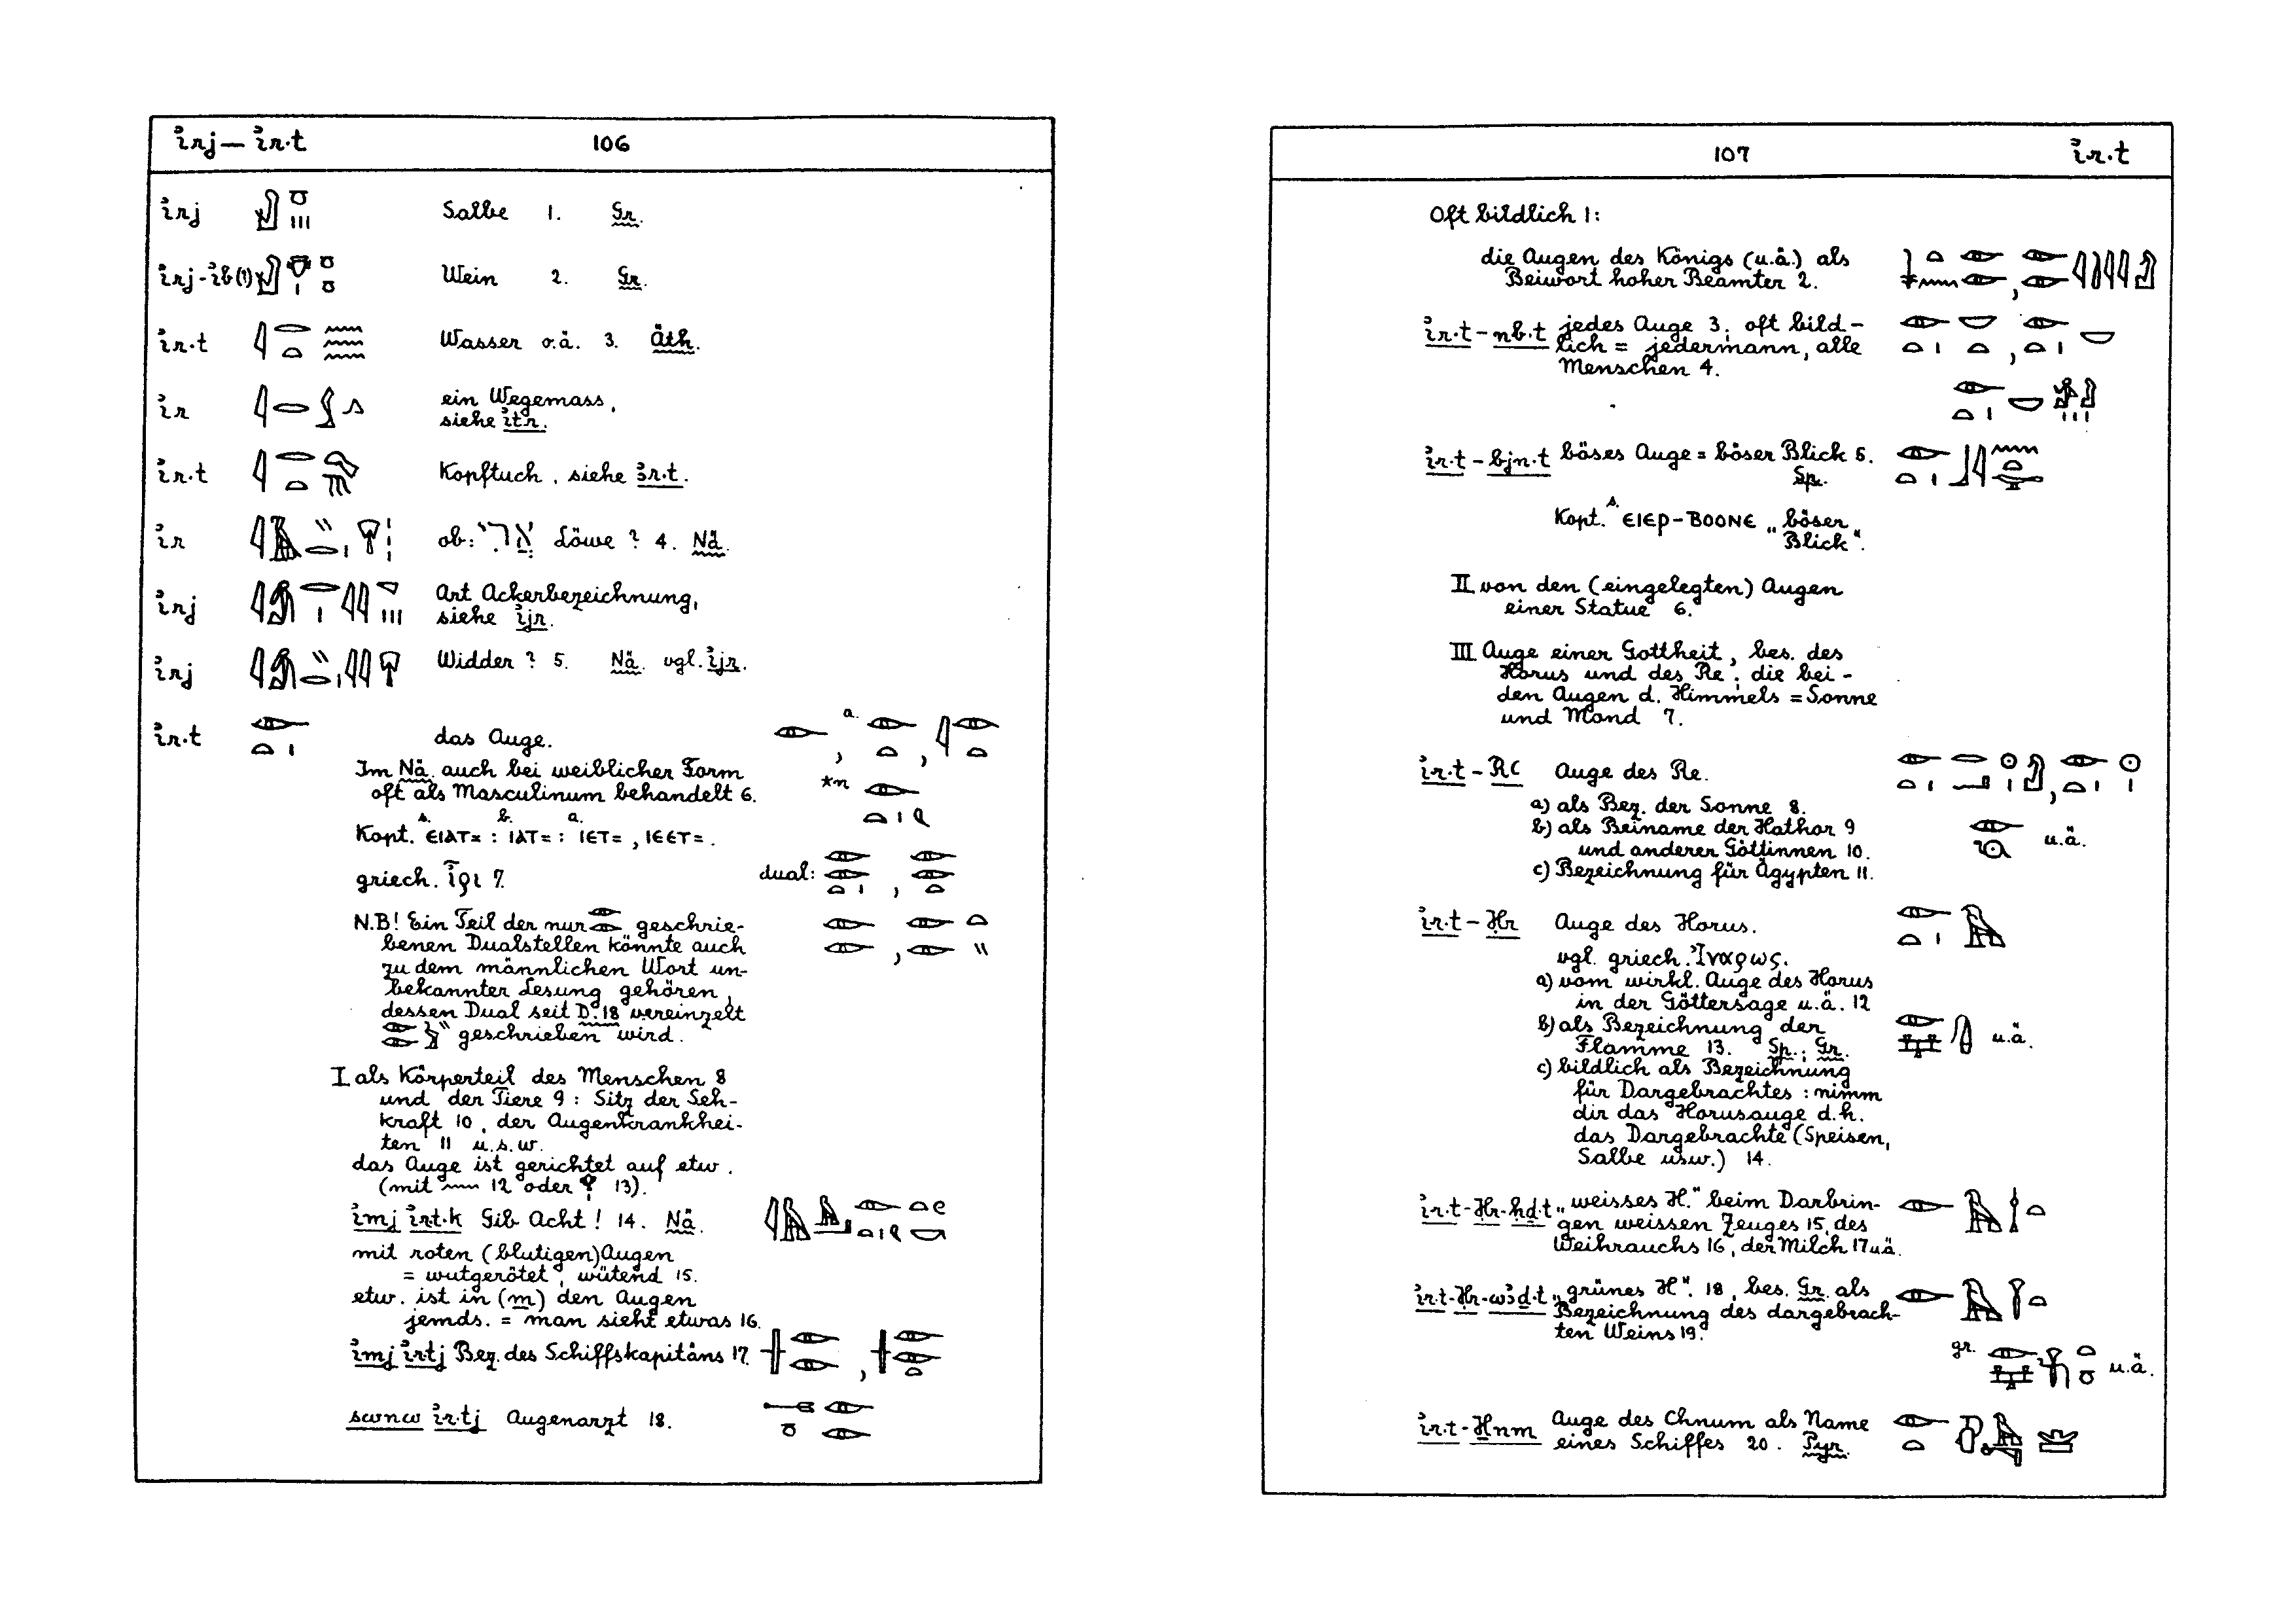 ἰrj — ἰr·t 106
ἰrj Salbe 1. Gr.
ἰrj-ἰb(?) Wein 2. Gr.
ἰr·t Wasser o.ä. 3. Äth.
ἰr ein Wegemass,
siehe ἰtr.
ἰr·t Kopftuch, siehe ꜣr·t.
ἰr ob: Löwe ? 4. Nä.
ἰrj Art Ackerbezeichnung,
siehe ἰjr.
ἰrj Widder ? 5. Nä. vgl. ἰjr.
ἰr·t das Auge. a.
Im Nä. auch bei weiblicher Form
oft als Masculinum behandelt 6. *n
s. b. a.
Kopt. ⲉⲓⲁⲧ= : ⲓⲁⲧ= : ⲓⲉⲧ= , ⲓⲉⲉⲧ= .
griech. ἰρι 7. dual:
N.B! Ein Teil der nur geschrie-
benen Dualstellen könnte auch
zu dem männlichen Wort un-
bekannter Lesung gehören,
dessen Dual seit D.18 vereinzelt
geschrieben wird.
I als Körperteil des Menschen 8
und der Tiere 9 : Sitz der Seh-
kraft 10, der Augenkrankhei-
ten 11 u.s.w.
das Auge ist gerichtet auf etw.
(mit 12 oder 13).
ἰmj ἰrt·k Gib Acht! 14. Nä.
mit roten (blutigen) Augen
= wutgerötet, wütend 15.
etw. ist in (m) den Augen
jemds. = man sieht etwas 16.
ἰmj ἰrtj Bez. des Schiffskapitäns 17.
swnw ἰr·tj Augenarzt 18.
107 ἰr·t
Oft bildlich 1:
die Augen des Königs (u.ä.) als
Beiwort hoher Beamter 2.
ἰr·t-nb·t jedes Auge 3; oft bild-
lich = jedermann, alle
Menschen 4.
ἰr·t-bjn·t böses Auge = böser Blick 5.
Sp.
s.
Kopt. ⲉⲓⲉⲣ-ⲃⲟⲟⲛⲉ „böser
Blick“.
II von den (eingelegten) Augen
einer Statue 6.
III Auge einer Gottheit, bes. des
Horus und des Re; die bei-
den Augen d. Himmels = Sonne
und Mond 7.
ἰr·t-Rꜥ Auge des Re.
a) als Bez. der Sonne 8.
b) als Beiname der Hathor 9 u.ä.
und anderer Göttinnen 10.
c) Bezeichnung für Ägypten 11.
ἰr·t-Ḥr Auge des Horus.
vgl. griech. Ἰναρως.
a) vom wirkl. Auge des Horus
in der Göttersage u.ä. 12
b) als Bezeichnung der u.ä.
Flamme 13. Sp.; Gr.
c) bildlich als Bezeichnung
für Dargebrachtes : nimm
dir das Horusauge d.h.
das Dargebrachte (Speisen,
Salbe usw.) 14.
ἰr·t-Ḥr-ḥḏ·t „weisses H.“ beim Darbrin-
gen weissen Zeuges 15, des
Weihrauchs 16, der Milch 17 u.ä.
ἰr·t-Ḥr-wꜣḏ·t „grünes H“. 18, bes. Gr. als
Bezeichnung des dargebrach-
ten Weins 19.
gr. u.ä.
ἰr·t-H̱nm Auge des Chnum als Name
eines Schiffes 20. Pyr.